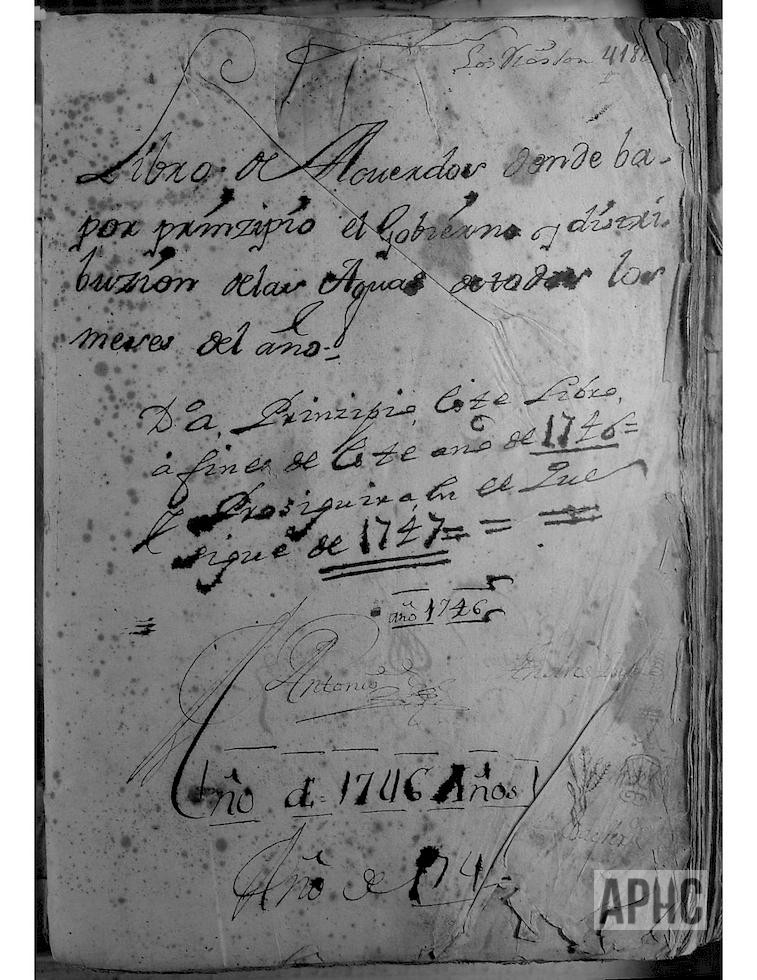 Libro de Acuerdos donde ba-
por prinzipio el Gobierno y distri-
buzion delas Aguas de todos los
meses del año-
Da Prinzipio Este Libro,
a fines de Este año de 1746=
Prosiguira En el Que
sigue de 1747= =
año 1746
Antonio
Año de 1746 Años
Año de 174
APHC